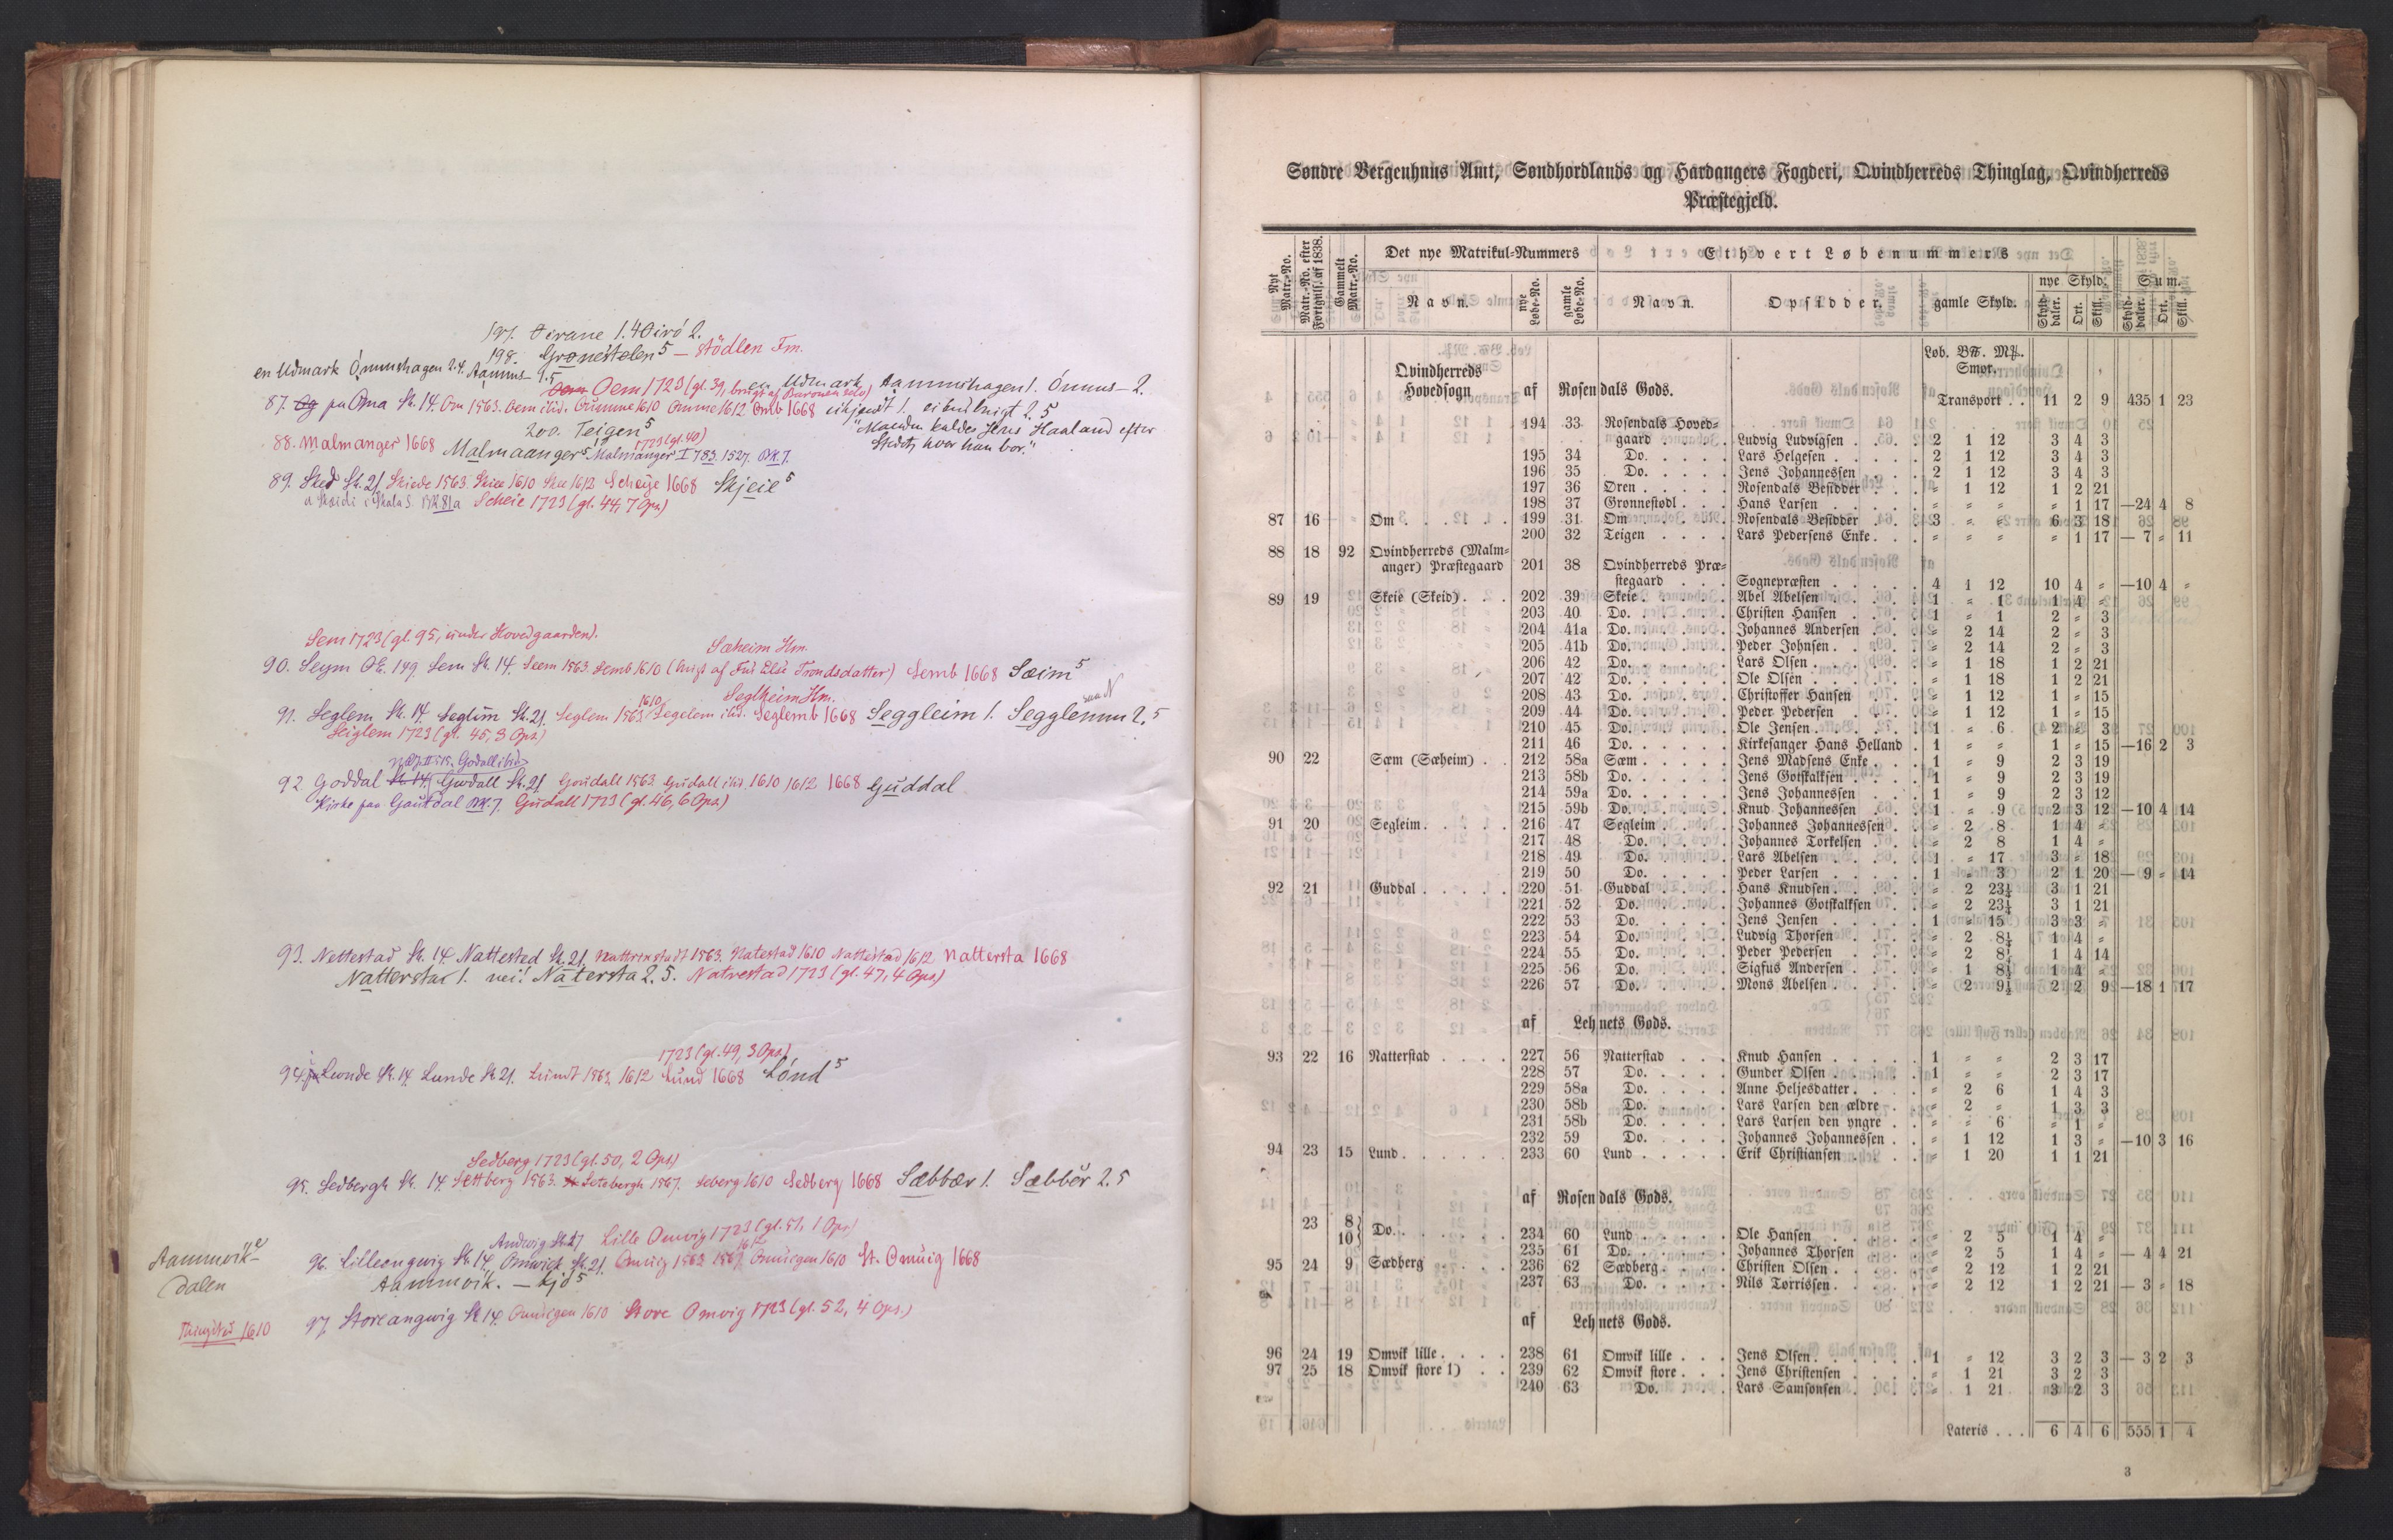 197. Øirane 1. 4 Øiró 2.
198. Grønestølen 5 — Stödlen Fm.
en Udmark Ómmshagen 2.4. Aammus- 1.5
Oem 1723 (gl. 39, brugt af Baronen selv)
en Udmark Aammshagen 1. Ómmus- 2.
87. pa Oma Sk. 14. Om 1563. Oem ibid. Omme 1612 Omb 1668 ikjendt 1. ei 2.5
200. Teigen 5
"Manden kaldes Jens Haaland efter
Stedet, hvor han bor."
1723 (gl. 40)
88. Malmanger 1668 Malmaanger 5 Malmanger I 783. 1527. BK. 7.
89. Sked Sk. 21 Skiede 1563 Skiee 1610 Skee 1612 Scheye 1668 Skjeie 5
a Skeidi i Skala S. BK. 81a Scheie 1723 (gl. 44, 7 Ops.)
Sem 1723 (gl. 95, under Hovedgaarden).
Sæheim Hm.
90. Seym OE. 149 Sem Sk. 14. Seem 1563 Semb 1610 (brugt af Fru Else Trondsdatter) Semb 1668 Sæim 5
Seglheim Hm.
91. Seglem Sk. 14. Seglim Sk. 21. Seglem 1563 1610 Segelem ibid. Seglemb 1668 Seggleim 1. Segglemm 2.5
Seiglem 1723 (gl. 45, 3 Ops.)
92. Goddal Sk. 14. Godall Sk. 21 Goudall 1563. Gudall ibid. 1610 1612 1668 Guddal
Kirke paa Gautdal BK. 7. Gudall 1723 (gl. 46, 6 Ops.)
93. Nettestad Sk. 14. Nattested Sk. 21. Nattrinstadt 1563. Natestad 1610 Nattestad 1612 Nattersta 1668
Natterstar 1. nei! Nätersta 2.5. Natrestad 1723 (gl. 47, 4 Ops.)
1723 (gl. 49, 3 Ops.)
94. Lwnde Sk. 14 Lunde Sk 21. Lundt 1563 1612 Lund 1668 Lónd 5
Sedberg 1723 (gl. 50, 2 Ops.)
95. Sedbergh Sk. 14. Settberg 1563. Setebergh 1567. Seberg 1610 Sedberg 1668 Sæbbær 1. Sæbbër 2.5
Andwig Sk 21 Lille Omvig 1723 (gl. 51, 1 Ops.)
96. Lilleongwig Sk. 14. Omwick Sk. 21. Omvig 1563 1567 Omuigen 1610 St. Omuig 1668
Aammvik. — tjó 5
Aammvike-
dalen
97. Storeangwig Sk 14. Omuigen 1610 Store Omvig 1723 (gl. 52, 4 Ops.)
Thingsted 1610
Søndre Bergenhuus Amt, Søndhordlands og Hardangers Fogderi, Qvindherreds Thinglag, Qvindherreds
Præstegjeld.
Nyt Matr.-No.
Matr.-No. efter Fortegnels. af 1838.
Gammelt Matr.-No.
Det nye Matrikul-Nummers
Ethvert Løbenummers
Navn.
nye Løbe-No.
gamle Løbe-No.
Navn.
Opsidder.
gamle Skyld.
nye Skyld.
Sum.
Skylddaler. Ort. Skill.
Skylddaler. Ort. Skill.
Løb. B℔. M℔.
Smør.
Qvindherreds
Hovedsogn af Rosendals Gods.
Transport . . 11 2 9 435 1 23
194 33 Rosendals Hoved-
gaard . . . . Ludvig Ludvigsen . . . 2 1 12 3 4 3
195 34 Do. . . . . Lars Helgesen . . . . 2 1 12 3 4 3
196 35 Do. . . . . Jens Johannessen . . . 2 1 12 3 4 3
197 36 Øren . . . . Rosendals Besidder . . . „ 1 12 1 2 21
198 37 Grønnestødl . . . Hans Larsen . . . . „ „ „ „ 1 17 —24 4 8
87 16 Om . . . . . 199 31 Om . . . . Rosendals Besidder . . . 3 „ „ 6 3 18
200 32 Teigen . . . . Lars Pedersens Enke . . . „ „ „ „ 1 17 — 7 „ 11
88 18 92 Qvindherreds (Malm-
anger) Præstegaard 201 38 Qvindherreds Præ-
stegaard . . . Sognepræsten . . . . 4 1 12 10 4 „ —10 4 „
89 19 Skeie (Skeid) . . . 202 39 Skeie . . . . Abel Abelsen . . . . 1 „ 1 1 4 „
203 40 Do. . . . . Christen Hansen . . . 1 „ 1 2 „ 3
204 41a Do. . . . . Johannes Andersen . . . „ 2 14 2 „ 3
205 41b Do. . . . . Peder Johnsen . . . . „ 2 14 2 „ 3
206 42 Do. . . . . Lars Olsen . . . . „ 1 18 1 2 21
207 42 Do. . . . . Ole Olsen . . . . „ 1 18 1 2 21
208 43 Do. . . . . Christoffer Hansen . . . „ 1 12 1 „ 15
209 44 Do. . . . . Peder Pedersen . . . „ 1 12 1 „ 15
210 45 Do. . . . . Ole Jensen . . . . 1 „ 6 2 „ 3
211 46 Do. . . . . Kirkesanger Hans Helland . 1 „ „ 1 „ 15 —16 2 3
90 22 Sæm (Sæheim) . . 212 58a Sæm . . . . Jens Madsens Enke . . . 1 „ 9 2 3 19
213 58b Do. . . . . Jens Gotskalksen . . . 1 „ 9 2 3 19
214 59a Do. . . . . Jens Johannessen . . . 1 „ 9 2 3 12
215 59b Do. . . . . Knud Johannessen . . . 1 „ 9 2 3 12 —10 4 14
91 20 Segleim . . . . . 216 47 Segleim . . . . Johannes Johannessen . . „ 2 8 1 4 „
217 48 Do. . . . . Johannes Torkelsen . . . „ 2 8 1 4 „
218 49 Do. . . . . Lars Abelsen . . . . 1 „ 17 3 „ 18
219 50 Do. . . . . Peder Larsen . . . . 1 „ 3 2 1 20 — 9 „ 14
92 21 Guddal . . . . . 220 51 Guddal . . . . Hans Knudsen . . . . „ 2 23¼ 3 1 21
221 52 Do. . . . . Johannes Gotskalksen . . „ 2 23¼ 3 1 21
222 53 Do. . . . . Jens Jensen . . . . 1 „ 15 3 3 „
223 54 Do. . . . . Ludvig Thorsen . . . „ 2 8¼ 1 4 „
224 55 Do. . . . . Peder Pedersen . . . „ 2 8¼ 1 4 14
225 56 Do. . . . . Sigfus Andersen . . . „ 1 8¼ 1 4 „
226 57 Do. . . . . Mons Abelsen . . . . „ 2 9½ 2 2 9 —18 1 17
af Lehnets Gods.
93 22 16 Natterstad . . . . 227 56 Natterstad . . . Knud Hansen . . . . 1 „ „ 2 3 17
228 57 Do. . . . . Gunder Olsen . . . . 1 „ „ 2 3 17
229 58a Do. . . . . Anne Heljesdatter . . . „ 2 6 1 4 3
230 58b Do. . . . . Lars Larsen den ældre . . „ 2 „ 1 3 3
231 58b Do. . . . . Lars Larsen den yngre . . „ „ 6 „ 1 „
232 59 Do. . . . . Johannes Johannessen . . „ 1 12 1 3 „ —10 3 16
94 23 15 Lund . . . . . . 233 60 Lund . . . . . Erik Christiansen . . . „ 1 20 1 1 21
af Rosendals Gods.
23 8 10 } Do. . . . . . 234 60 Lund . . . . . Ole Hansen . . . . „ 2 5 1 4 „
235 61 Do. . . . . Johannes Thorsen . . . „ 2 5 1 4 „ — 4 4 21
95 24 9 Sædberg . . . . 236 62 Sædberg . . . . Christen Olsen . . . . „ 2 12 1 2 21
237 63 Do. . . . . Nils Tørrissen . . . . „ 2 12 1 2 21 — 3 „ 18
af Lehnets Gods.
96 24 19 Omvik lille . . . . 238 61 Omvik lille . . . Jens Olsen . . . . . 1 „ 12 3 2 3 — 3 2 3
97 25 18 Omvik store 1) . . 239 62 Omvik store . . . Jens Christensen . . . „ 1 21 3 2 3
240 63 Do. . . . . Lars Samsonsen . . . „ 1 21 3 2 3
Lateris . . . 6 4 6 555 1 4
3